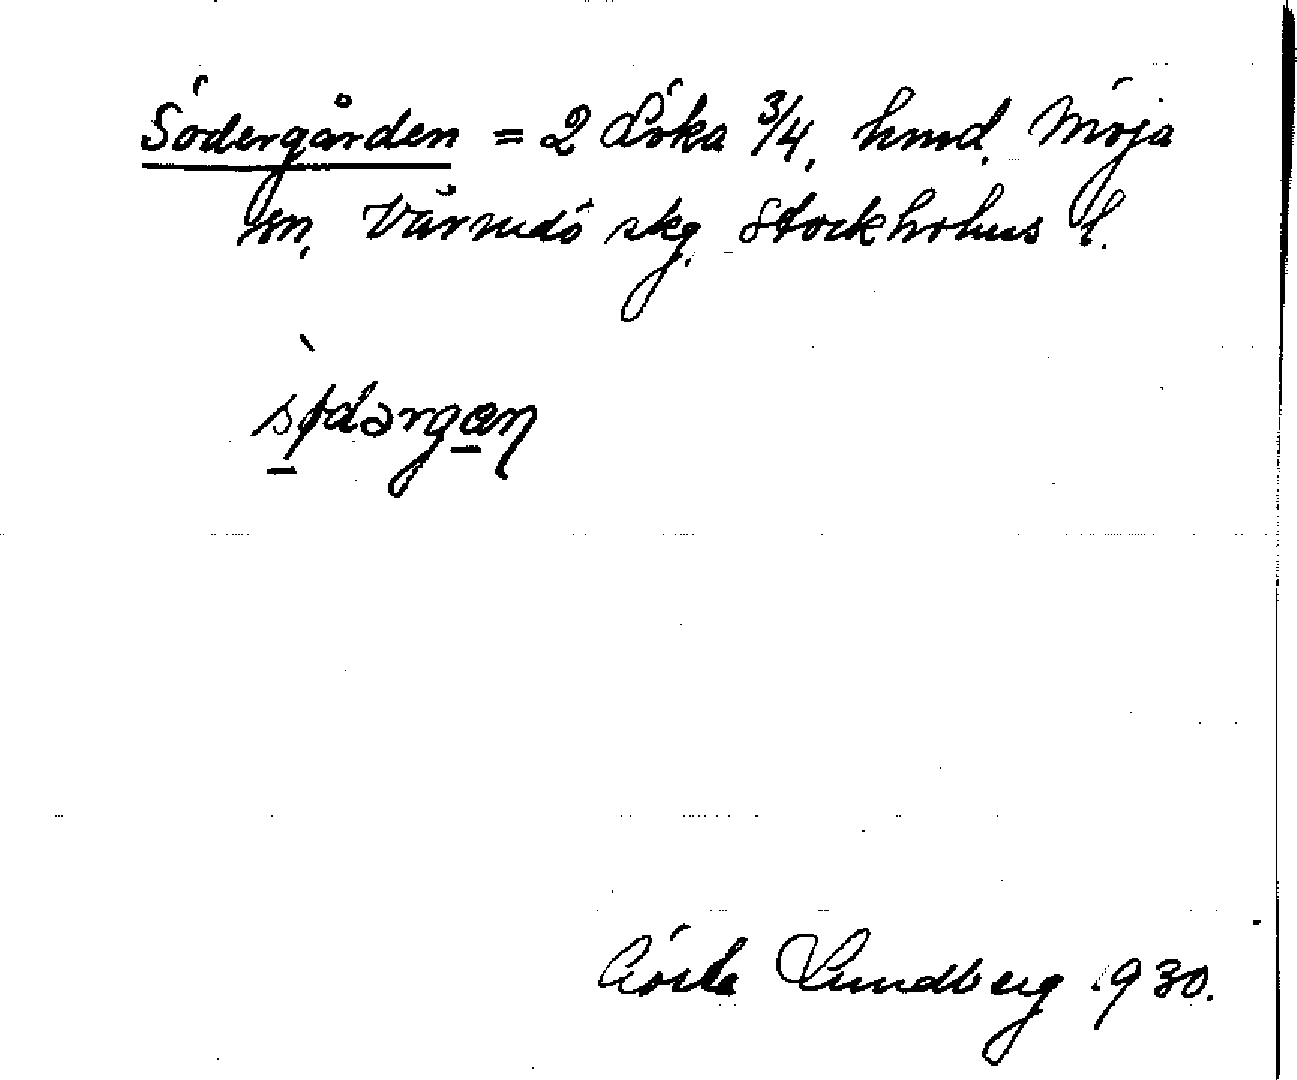 Södergården = 2 Löka 3/4, hmd. Möja
sn, Värmdö skg, Stockholms l.
sø̀dərgan
Gösta Lundberg 1930.